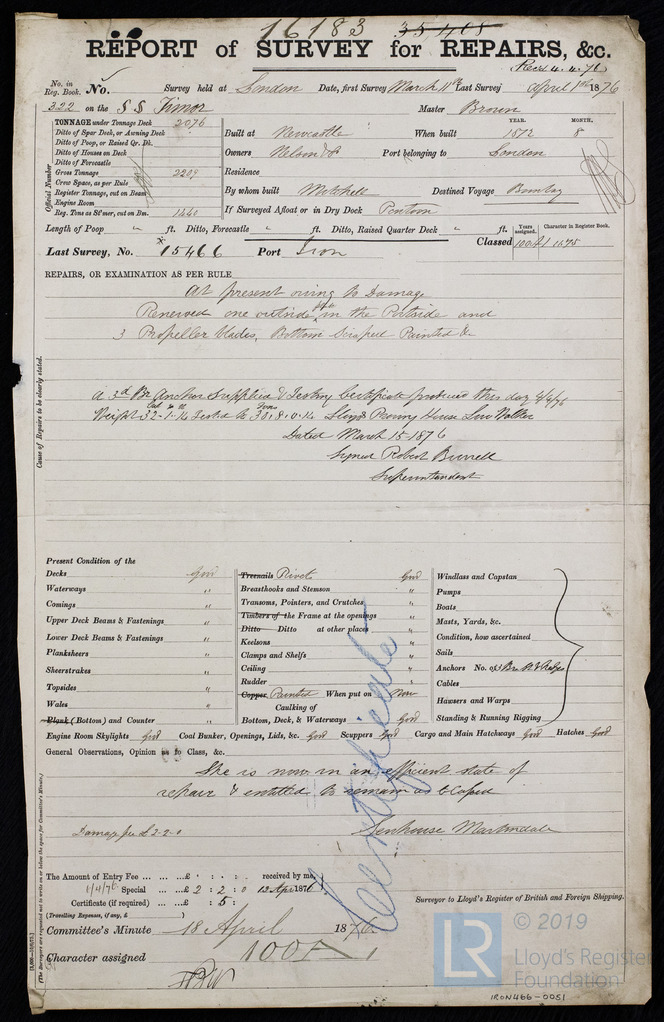 16183 35408
REPORT of SURVEY for REPAIRS, &c.
Recd 4.4.76
No. in Reg. Book. No. Survey held at London Date, first Survey March 11th Last Survey April 1st 1876
322 on the SS Timor Master Brown
TONNAGE under Tonnage Deck 2076
Ditto of Spar Deck, or Awning Deck
Ditto of Poop, or Raised Qr. Dk.
Ditto of Houses on Deck
Ditto of Forecastle
Gross Tonnage 2209
Crew Space, as per Rule
Register Tonnage, out on Beam
Engine Room
Reg. Tons as St'mer, cut on Bm. 1440
Official Number
YEAR. MONTH.
Built at Newcastle When built 1872 8
Owners Nelson & Port belonging to London
Residence
By whom built Mitchell Destined Voyage Bombay
If Surveyed Afloat or in Dry Dock
Length of Poop " ft. Ditto, Forecastle " ft. Ditto, Raised Quarter Deck " ft.
Years assigned. Character in Register Book.
Classed 100A1 1875
Last Survey, No. 15466 Port Iron
REPAIRS, OR EXAMINATION AS PER RULE
At present owing to Damage
Renewed one outside in the Portside and
3 Propeller blades, Bottom Scraped Painted &c
Cause of Repairs to be clearly stated.
A 3rd Br Anchor Supplied & Testing Certificate produced this day 4/4/76
Weight 32-1-14 Tested to 30.8.0.14 Lloyds Proving House Low Walker
Dated March 15-1876
Signed Robert Burrell
Superintendent
Present Condition of the
Decks Good
Waterways "
Comings "
Upper Deck Beams & Fastenings "
Lower Deck Beams & Fastenings "
Planksheers "
Sheerstrakes "
Topsides "
Wales "
Plank (Bottom) and Counter "
Treenails Rivets Good
Breasthooks and Stemson "
Transoms, Pointers, and Crutches "
Timbers of the Frame at the openings "
Ditto Ditto at other places "
Keelsons "
Clamps and Shelfs "
Ceiling "
Rudder "
Copper Painted When put on Now
Caulking of
Bottom, Deck, & Waterways Good
Windlass and Capstan
Pumps
Boats
Masts, Yards, &c.
Condition, how ascertained
Sails
Anchors No. of
Cables
Hawsers and Warps
Standing & Running Rigging
Engine Room Skylights Good Coal Bunker, Openings, Lids, &c. Good Scuppers Good Cargo and Main Hatchways Good Hatches Good
General Observations, Opinion as to Class, &c.
She is now in an efficient state of
repair & entitled to remain as Classed
Certificate
Damage fee £2-2-0 Senhouse Martindale
The Amount of Entry Fee ... ... ... £ : : received by me,
1/4/76 Special ... ... £ 2 : 2 : 0 12 Apr 1876
Certificate (if required) ... ... £ : 5 :
(Travelling Expenses, if any, £ )
Surveyor to Lloyd's Register of British and Foreign Shipping.
Committee's Minute 18 April 1876
Character assigned 100A 1
© 2019
LR Lloyd's Register
Foundation
IRON466-0051